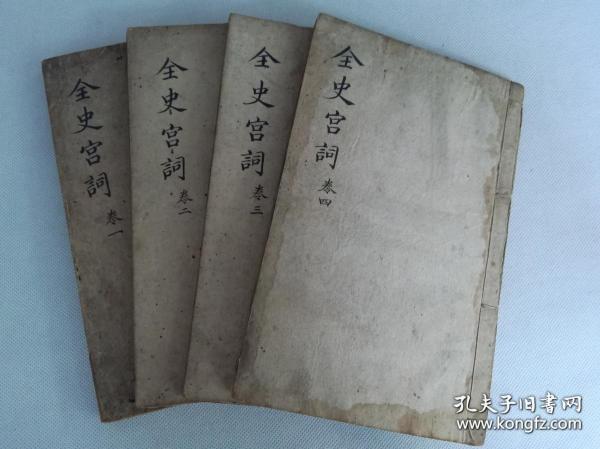 全史宫詞
卷一
全史宫詞
卷二
全史宫詞
卷三
全史宫詞
卷四
孔夫子旧书网
www.kongfz.com